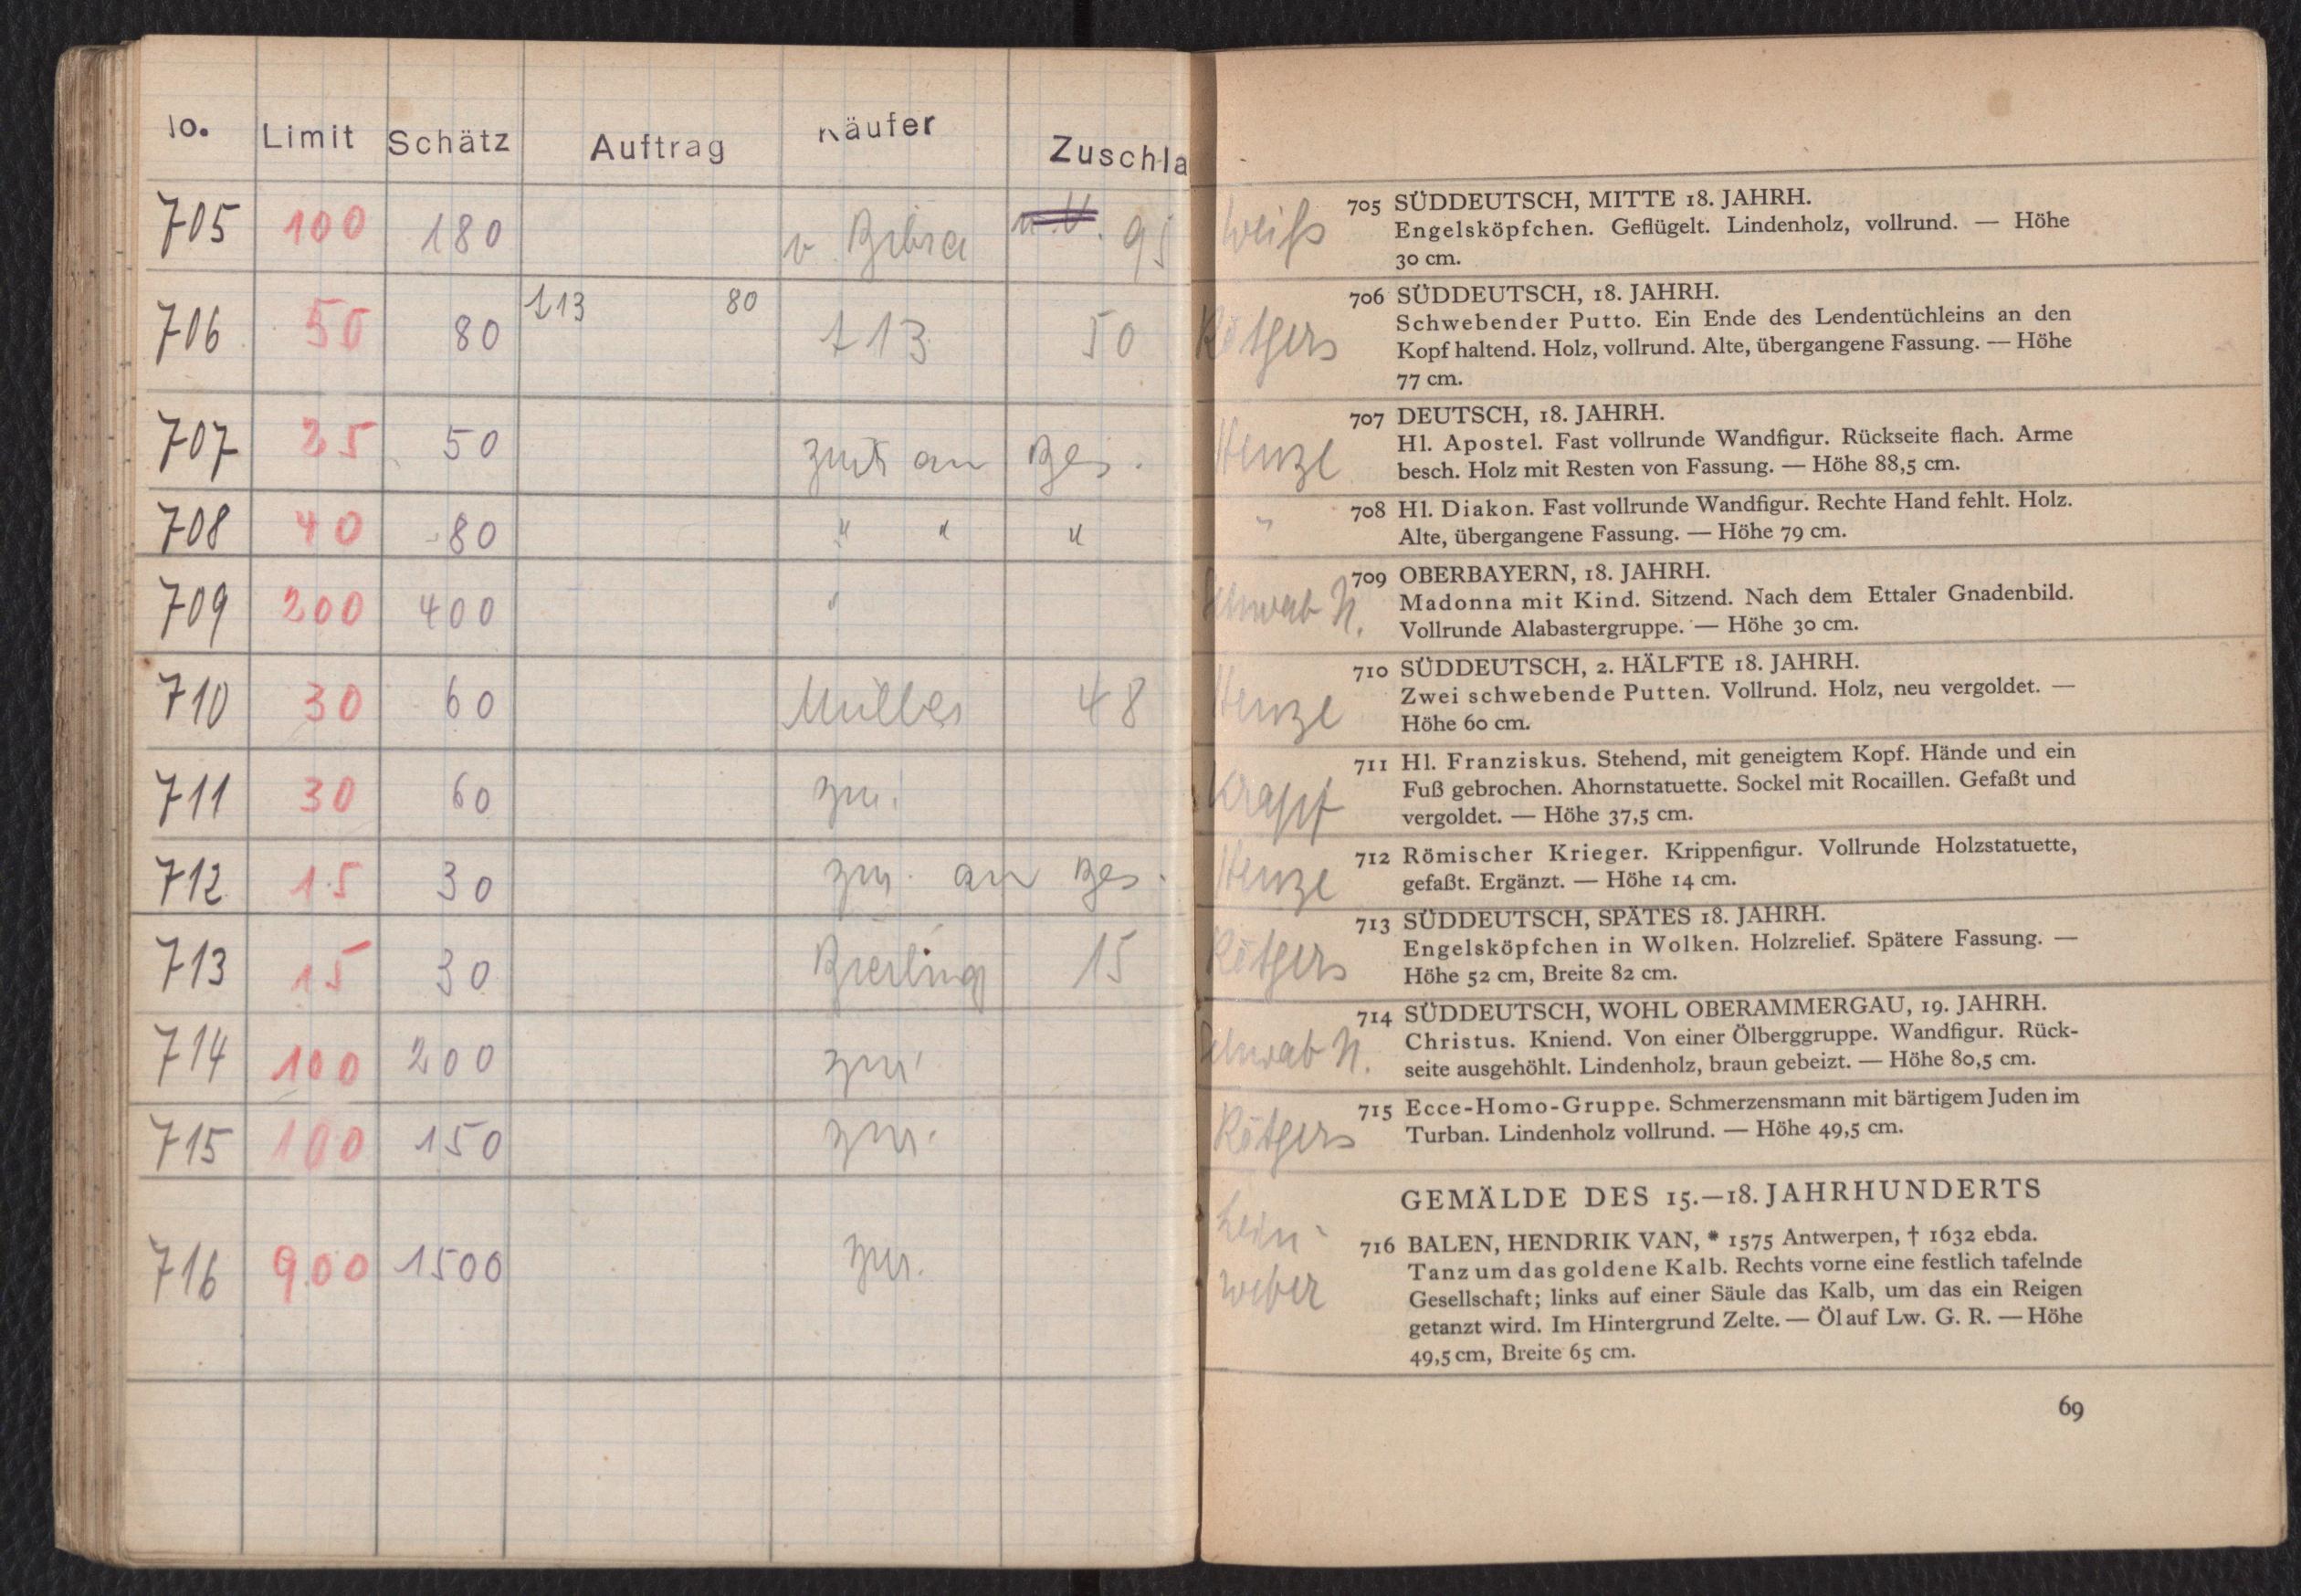 No. Limit Schätz Auftrag Käufer Zuschla
705 100 180 v. Bibra 95
706 50 80 113 80 113 50
707 25 50 zur. an Bes.
708 40 80 " " "
709 200 400 "
710 30 60 Müller 48
711 30 60 zur.
712 15 30 zur. an Bes.
713 15 30 Bierling 15
714 100 200 zur.
715 100 150 zur.
716 900 1500 zur.
Weiß
705 SÜDDEUTSCH, MITTE 18. JAHRH.
Engelsköpfchen. Geflügelt. Lindenholz, vollrund. — Höhe
30 cm.
Rötgers
706 SÜDDEUTSCH, 18. JAHRH.
Schwebender Putto. Ein Ende des Lendentüchleins an den
Kopf haltend. Holz, vollrund. Alte, übergangene Fassung. — Höhe
77 cm.
Henzel
707 DEUTSCH, 18. JAHRH.
Hl. Apostel. Fast vollrunde Wandfigur. Rückseite flach. Arme
besch. Holz mit Resten von Fassung. — Höhe 88,5 cm.
"
708 Hl. Diakon. Fast vollrunde Wandfigur. Rechte Hand fehlt. Holz.
Alte, übergangene Fassung. — Höhe 79 cm.
Schwab N.
709 OBERBAYERN, 18. JAHRH.
Madonna mit Kind. Sitzend. Nach dem Ettaler Gnadenbild.
Vollrunde Alabastergruppe. — Höhe 30 cm.
Henzel
710 SÜDDEUTSCH, 2. HÄLFTE 18. JAHRH.
Zwei schwebende Putten. Vollrund. Holz, neu vergoldet. —
Höhe 60 cm.
Krapf
711 Hl. Franziskus. Stehend, mit geneigtem Kopf. Hände und ein
Fuß gebrochen. Ahornstatuette. Sockel mit Rocaillen. Gefaßt und
vergoldet. — Höhe 37,5 cm.
Henzel
712 Römischer Krieger. Krippenfigur. Vollrunde Holzstatuette,
gefaßt. Ergänzt. — Höhe 14 cm.
Rötgers
713 SÜDDEUTSCH, SPÄTES 18. JAHRH.
Engelsköpfchen in Wolken. Holzrelief. Spätere Fassung. —
Höhe 52 cm, Breite 82 cm.
Schwab N.
714 SÜDDEUTSCH, WOHL OBERAMMERGAU, 19. JAHRH.
Christus. Kniend. Von einer Ölberggruppe. Wandfigur. Rück-
seite ausgehöhlt. Lindenholz, braun gebeizt. — Höhe 80,5 cm.
Rötgers
715 Ecce-Homo-Gruppe. Schmerzensmann mit bärtigem Juden im
Turban. Lindenholz vollrund. — Höhe 49,5 cm.
GEMÄLDE DES 15.—18. JAHRHUNDERTS
Lein-
weber
716 BALEN, HENDRIK VAN, * 1575 Antwerpen, † 1632 ebda.
Tanz um das goldene Kalb. Rechts vorne eine festlich tafelnde
Gesellschaft; links auf einer Säule das Kalb, um das ein Reigen
getanzt wird. Im Hintergrund Zelte. — Öl auf Lw. G. R. — Höhe
49,5 cm, Breite 65 cm.
69